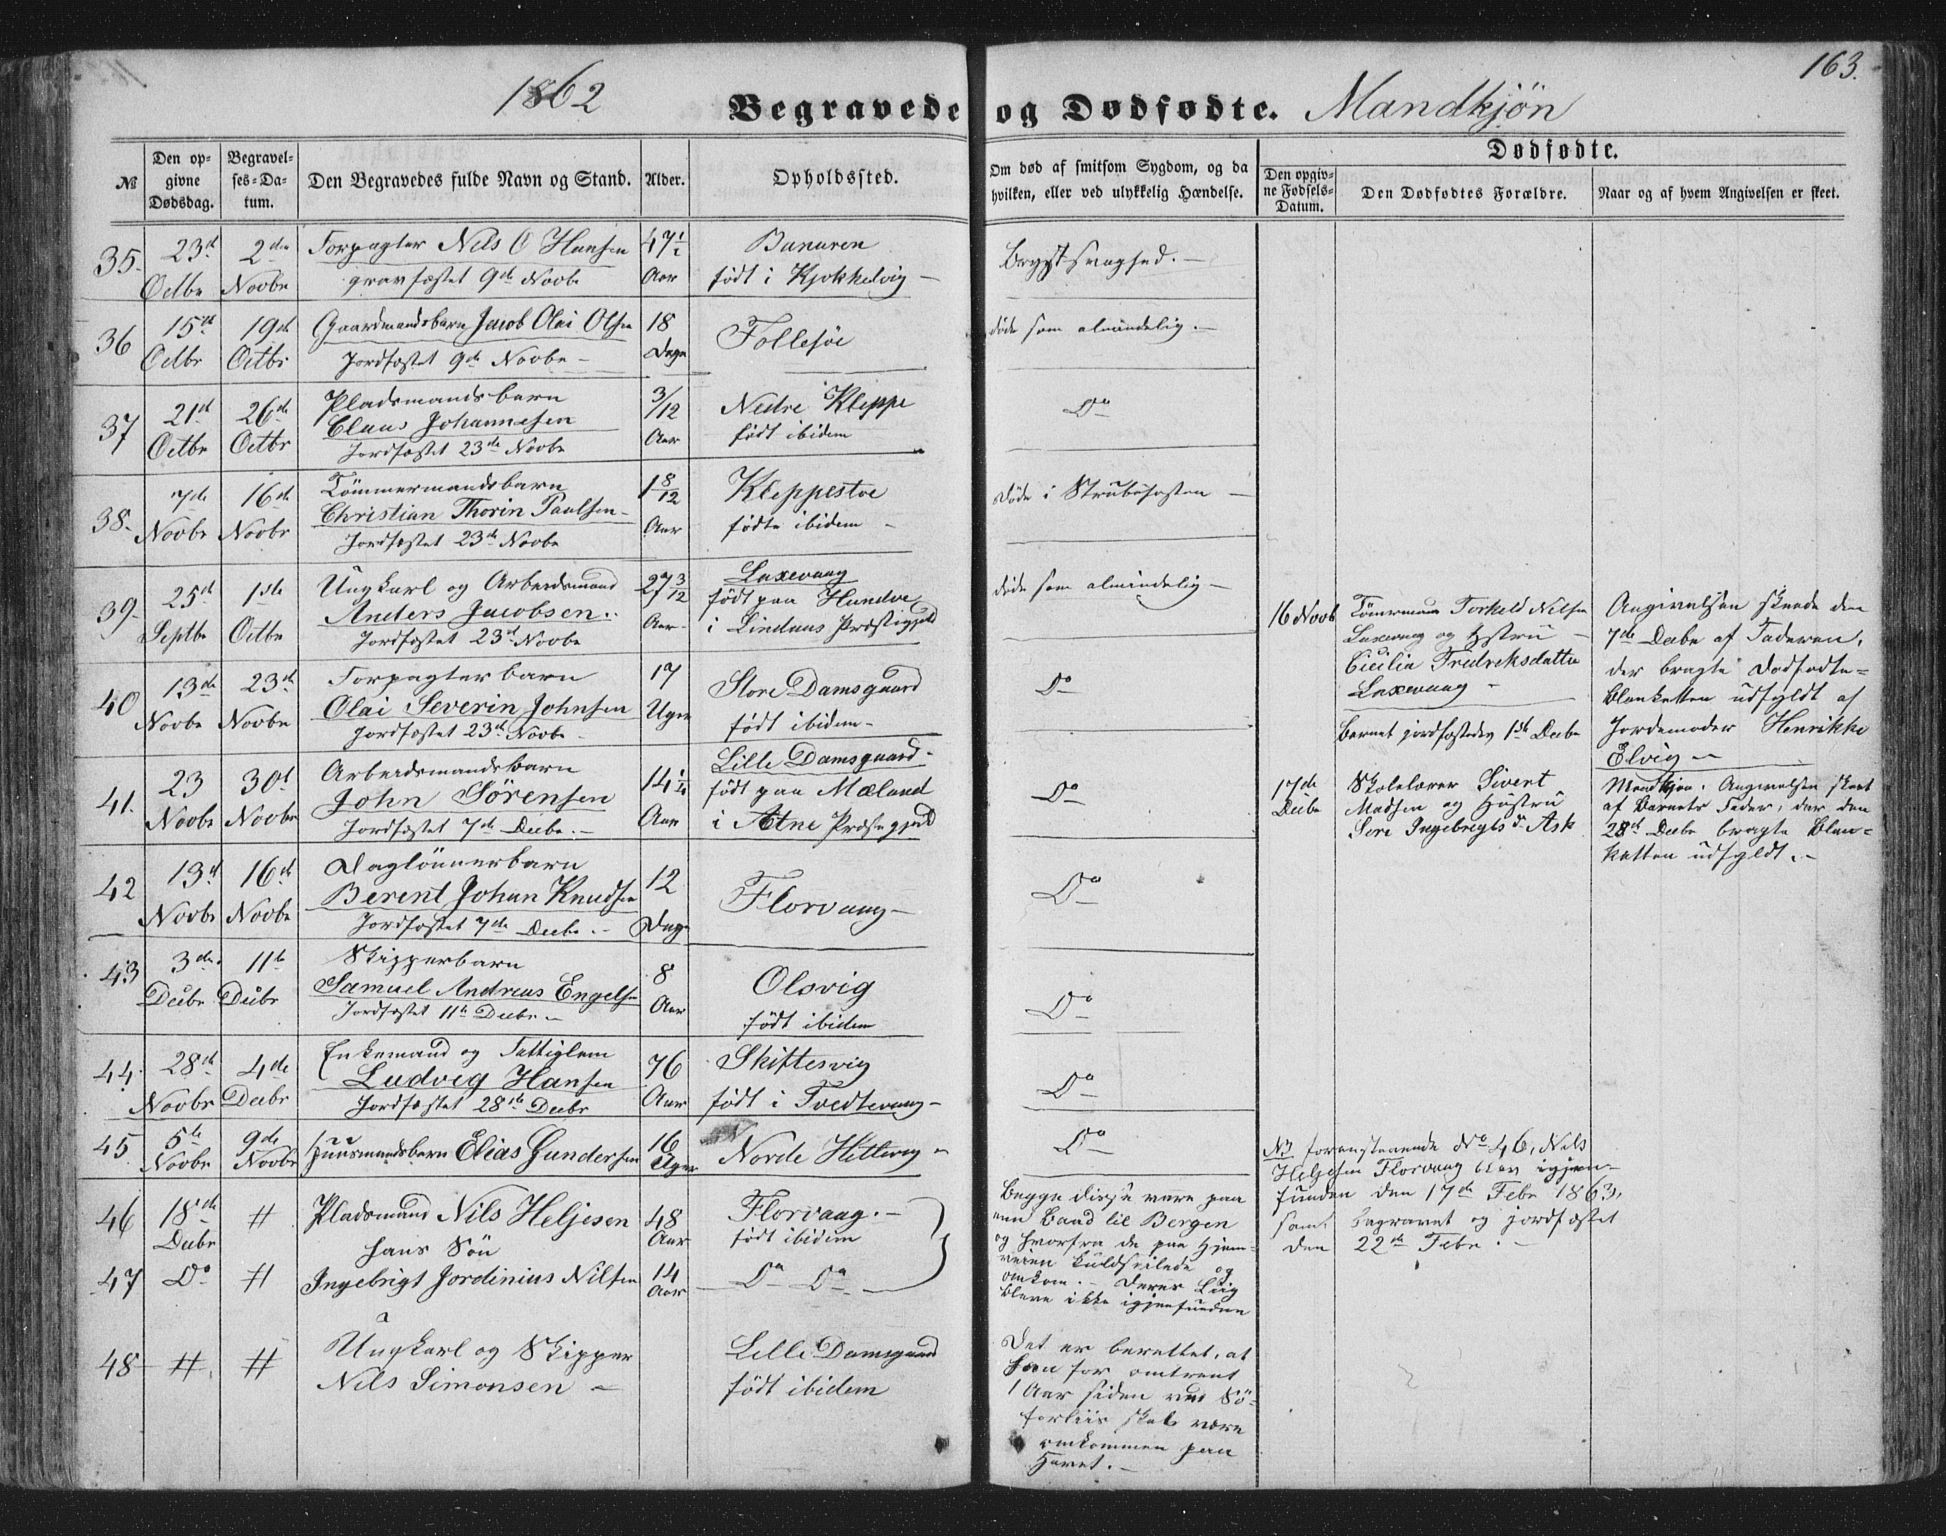 163.
1862 Begravede og Dødfødte. Mandkjön
№
Den opgivne Dødsdag.
Begravelses-Datum.
Den Begravedes fulde Navn og Stand.
Alder.
Opholdssted.
Om død af smitsom Sygdom, og da hvilken, eller ved ulykkelig Hændelse.
Dødfødte.
Den opgivne Fødsels-Datum.
Den Dødfødtes Forældre.
Naar og af hvem Angivelsen er skeet.
35. 23d Octbr 2den Novbr Forpagter Nils O Hansen 47 Aar Banuren
gravfæstet 9de Novbr født i Kjokkelvig
Brystsvaghed.
36 15d Octbr 19de Octbr Gaardmandsbarn Jacob Olai Olsen 18 Dage Follesöe
Jordfæstet 9de Novbr
døde som almindelig.
37 21d Octbr 26de Octbr Pladsmandsbarn 3/12 Aar Nedre Kleppe
Claus Johannesen født ibidem
Jordfæstet 23de Novbr
Do
38. 7de Novbr 16de Novbr Tömmermandsbarn 1 8/12 Aar Kleppestoe
Christian Thorin Paulsen födte ibidem
Jordfæstet 23de Novbr
Døde i Strubehosten
39. 25d Septbr 1ste Octbr Ungkarl og Arbeidsmand 27 3/12 Aar Laxevaag
Anders Jacobsen født paa Hundve
Jordfæstet 23d Novbr i Lindaas Præstegjeld
døde som almindelig
40 13de Novbr 23d Novbr Forpagterbarn 17 Uger Store Damsgaard
Olai Severin Johnsen født ibidem
Jordfæstet 23d Novbr
Do
41. 23 Novbr 30d Novbr Arbeidsmandsbarn 14 1/4 Aar Lille Damsgaard
John Sörensen født paa Mæland
Jordfæstet 7de Decbr. i Etne Præstegjeld
Do
42 13d Novbr 16de Novbr Daglönnerbarn 12 Dage Florvaag
Berent Johan Knudsen
Jordfæstet 7de Decbr.
Do
43 3de Decbr 11te Decbr Skipperbarn 8 Aar Olsvig
Samuel Andreas Engelsen født ibidem
Jordfæstet 11te Decbr
Do
44. 28de Novbr 4de Decbr Enkemand og Fattiglem 76 Aar Skiftesvig
Ludvig Hansen født i Tvedtevaag
Jordfæstet 28de Decbr
Do
45 5te Novbr 9de Novbr Huusmandsbarn Elias Gundersen 16 Uger Nordre Hettevig
Do
46 18de Decbr # Pladsmand Nils Heljesen 48 Aar Florvaag.
hans Sön født ibidem
47 Do # Ingebrigt Jordinius Nilsen 14 Aar Do Do
Begge disse vare paa
een Baad til Bergen
og hvorfra de paa Hjem-
veien kuldseilede og
omkom. Deres Liig
bleve ikke igjenfunden
48 # # Ungkarl og Skipper Lille Damsgaard
Nils Simonsen født ibidem
Det er berettet, at
han for omtrent
1 Aar siden ved Sö-
forliis skal være
omkommen paa
Havet.
16 Novb Tömmermand Torkeld Nilsen
Laxevaag og Hstru
Cicilia Fredriksdatter
Laxevaag
Barnet jordfæstedes 1ste Decbr
Angivelsen skeede den
7de Decbr af Faderen,
der bragte Dødfødte-
blanketten udfyldt af
Jordemoder Henrikke
Elvig
17de Decbr Skolelærer Sivert
Madsen og Hustru
Sere Ingebregtsdr Ask
Mandkjön. Angivelsen skeet
af Barnets Fader, der den
28de Decbr bragte Blan-
ketten udfyldt.
NB foranstaaende No 46, Nils
Heljesen Florvaag blev igjen-
funden den 17de Febr 1863,
samt begravet og jordfæstet
den 22de Febr.